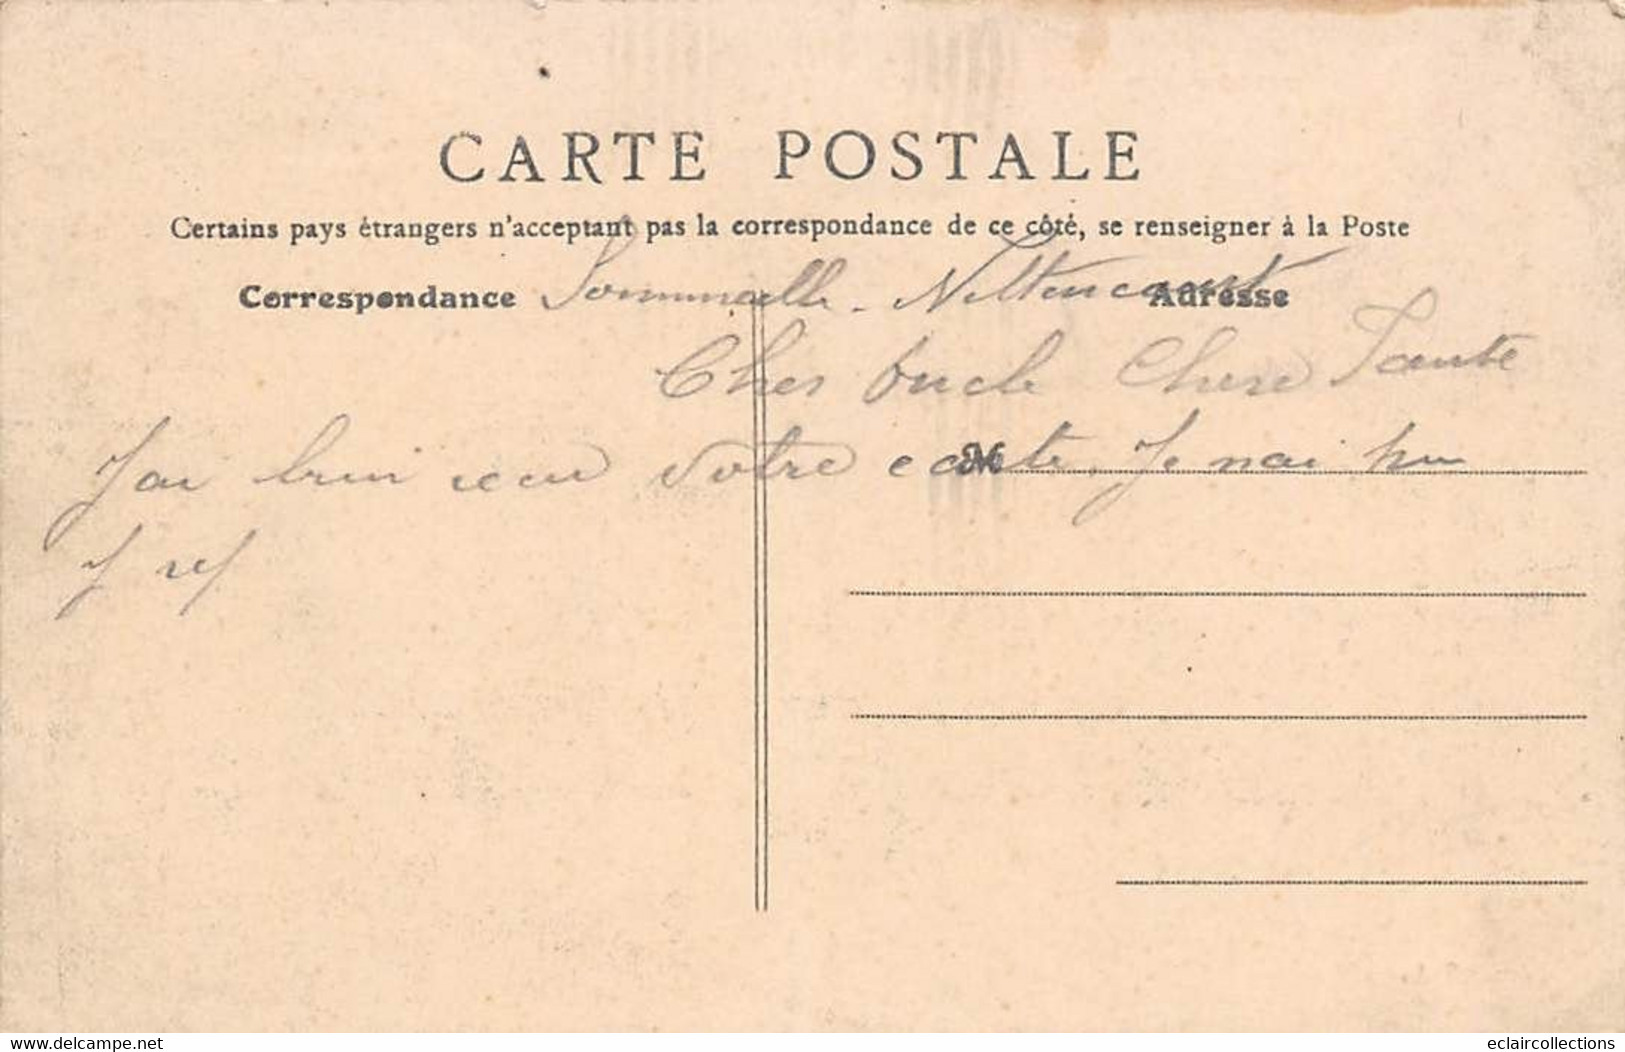 CARTE POSTALE
Certains pays étrangers n'acceptant pas la correspondance de ce côté, se renseigner à la Poste
Correspondance Adresse
Cher Oncle Chere Tante
J'ai bien recu votre carte. Je nai pu
M
www.delcampe.net eclaircollections